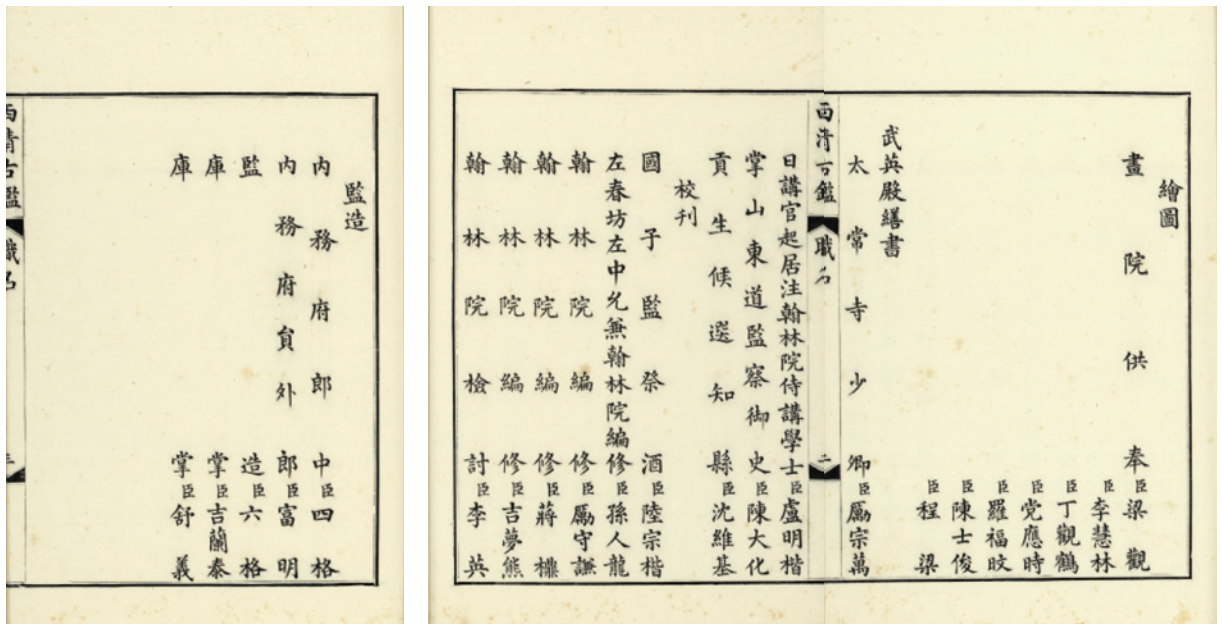 繪圖
畫院供奉臣梁觀
臣李慧林
臣丁觀鶴
臣党應時
臣羅福旼
臣陳士俊
臣程梁
武英殿繕書
太常寺少卿臣厲宗萬
西清古鑑 職名 二
日講官起居注翰林院侍講學士臣盧明楷
掌山東道監察御史臣陳大化
貢生候選知縣臣沈維基
校刊
國子監祭酒臣陸宗楷
左春坊左中允兼翰林院編修臣孫人龍
翰林院編修臣厲守謙
翰林院編修臣蔣櫎
翰林院編修臣吉夢熊
翰林院檢討臣李英
監造
內務府郎中臣四格
內務府員外郎臣富明
監造臣六格
庫掌臣吉蘭泰
庫掌臣舒義
西清古鑑 職名 三